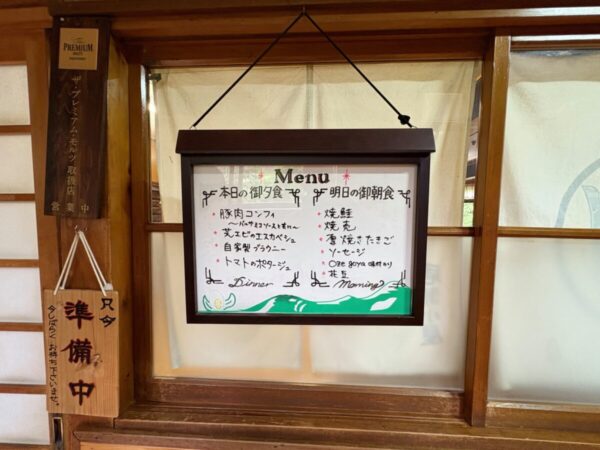 The
PREMIUM
MALT'S
ザ・プレミアム・モルツ取扱店
営業中
只今
準備中
今しばらくお待ち下さいませ。
Menu
本日の御夕食
・豚肉コンフィ
～バルサミコソースと共に～
・芝エビのエスカベシュ
・自家製ブラウニー
・トマトのポタージュ
Dinner
明日の御朝食
・焼鮭
・焼売
・厚焼きたまご
・ソーセージ
・Oze goya 味付のり
・花豆
Morning